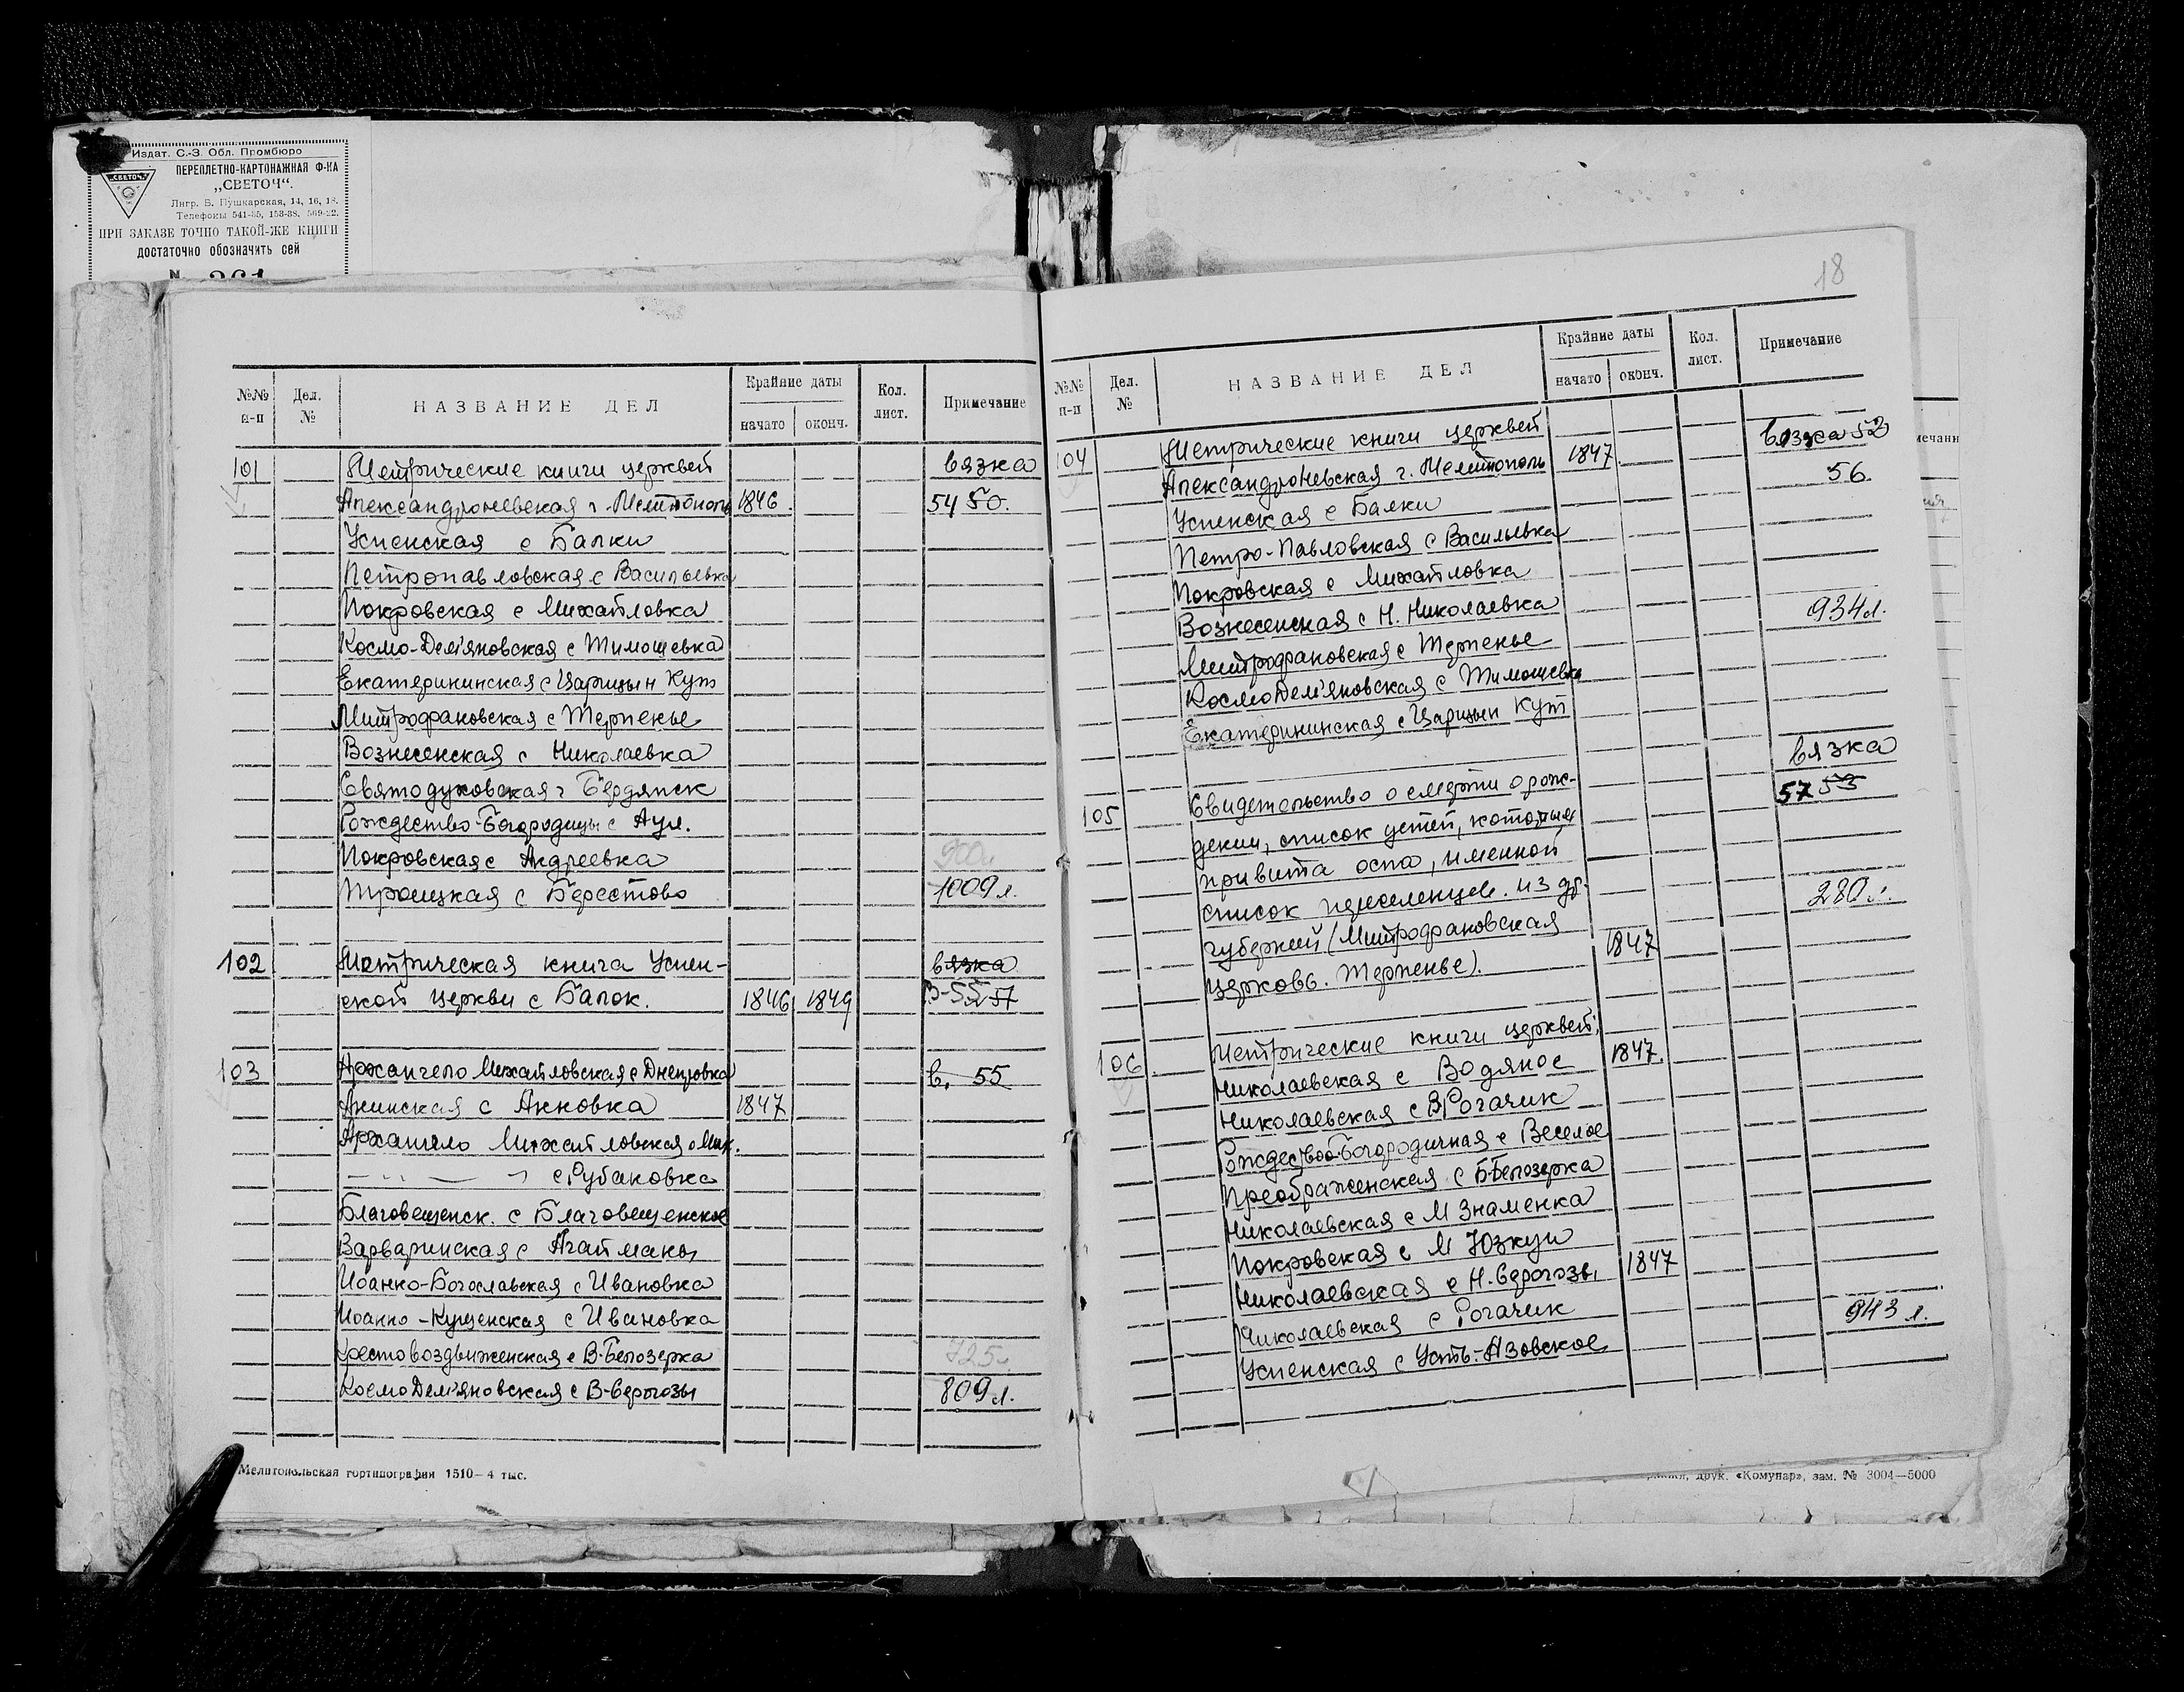 Издат. С.-З. Обл. Промбюро
ПЕРЕПЛЕТНО-КАРТОНАЖНАЯ Ф-КА
„СВЕТОЧ“.
„СВЕТОЧ“
Лнгр. Б. Пушкарская, 14, 16, 18.
Телефоны 541-35, 153-38, 569-22.
ПРИ ЗАКАЗЕ ТОЧНО ТАКОЙ-ЖЕ КНИГИ
ДОСТАТОЧНО ОБОЗНАЧИТЬ СЕЙ
№ 261
№№ п-п Дел. № НАЗВАНИЕ ДЕЛ Крайние даты начато оконч. Кол. лист. Примечание
101 Метрические книги церквей вязка
Александроневская г. Мелитополь 1846 54 50.
Успенская с Балки
Петропавловская с Васильевка
Покровская с Михайловка
Космо-Дем'яновская с Тимошевка
Екатерининская с Царицын Кут
Митрофановская с Терпенье
Вознесенская с Николаевка
Святодуховская г Бердянск
Рождество-Богородицы с Аул.
Покровская с Андреевка 900л
Троицкая с Берестово 1009 л.
102 Метрическая книга Успен- вязка
ской церкви с Балок. 1846 1849 В-55 57
103 Архангело Михайловская с Днепровка в. 55
Аннинская с Анновка 1847
Архангело Михайловская с Мих.
— " — " с Рубановка
Благовещенск. с Благовещенское
Варваринская с Агайманы
Иоанно-Богославская с Ивановка
Иоанно-Кущенская с Ивановка
Крестовоздвиженская с В-Белозерка 725л.
КосмоДем'яновская с В-Серогозы 809 л.
Мелитопольская гортипография 1510—4 тыс.
18
№№ п-п Дел. № НАЗВАНИЕ ДЕЛ Крайние даты начато оконч. Кол. лист. Примечание
104 Метрические книги церквей вязка 52
Александроневская г. Мелитополь 1847 56.
Успенская с Балки
Петро-Павловская с Васильевка
Покровская с Михайловка
Вознесенская с Н. Николаевка 934 л.
Митрофановская с Терпенье
КосмоДем'яновская с Тимошевка
Екатерининская с Царицын Кут
вязка
105 Свидетельство о смерти о рож- 57 53
дении, список детей, которым
привита оспа, именной
список переселенцев. из др. 280 л.
губерний (Митрофановская
церковь. Терпенье). 1847
106 Метрические книги церквей:
Николаевская с Водяное 1847.
Николаевская с В Рогачик
Рождество-Богородичная с Веселое
Преображенская с Б-Белозерка
Николаевская с М Знаменка
Покровская с М Юзкуи
Николаевская с Н. Серогозы 1847
Николаевская с Рогачик
Успенская с Усть-Азовское 943 л.
друк. «Комунар», зам. № 3004—5000